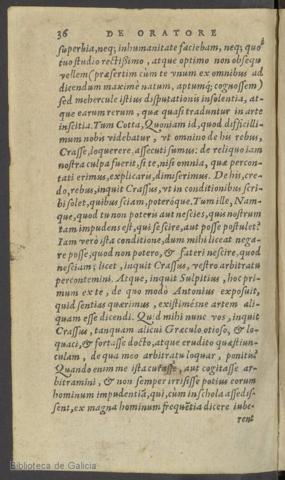 36 DE ORATORE
superbia, neq; inhumanitate faciebam, neq; quo
tuo studio rectissimo, atque optimo non obsequi
vellem (præsertim cùm te vnum ex omnibus ad
dicendum maximè natum, aptumq; cognossem)
sed mehercule istius disputationis insolentia, at-
que earum rerum, quæ quasi traduntur in arte
inscitia. Tum Cotta, Quoniam id, quod difficilli-
mum nobis videbatur, vt omnino de his rebus,
Crasse, loquerere, assecuti sumus: de reliquo iam
nostra culpa fuerit, si te, nisi omnia, quæ percon-
tati erimus, explicaris, dimiserimus. De his, cre-
do, rebus, inquit Crassus, vt in conditionibus scri-
bi solet, quibus sciam, poteróque. Tum ille, Nam-
que, quod tu non poteris aut nescies, quis nostrum
tam impudens est, qui se scire, aut posse postulet?
Iam verò ista conditione, dum mihi liceat nega-
re posse, quod non potero, & fateri nescire, quod
nesciam; licet, inquit Crassus, vestro arbitratu
percontemini. Atque, inquit Sulpitius, hoc pri-
mum ex te, de quo modo Antonius exposuit,
quid sentias quærimus, existimésne artem ali-
quam esse dicendi. Quid mihi nunc vos, inquit
Crassus, tanquam alicui Græculo otioso, & lo-
quaci, & fortasse docto, atque erudito quæstiun-
culam, de qua meo arbitratu loquar, ponitis?
Quando enim me ista curasse, aut cogitasse ar-
bitramini, & non semper irrisisse potius eorum
hominum impudentiã, qui, cum in schola assedis-
sent, ex magna hominum frequẽtia dicere iube-
rent
Biblioteca de Galicia